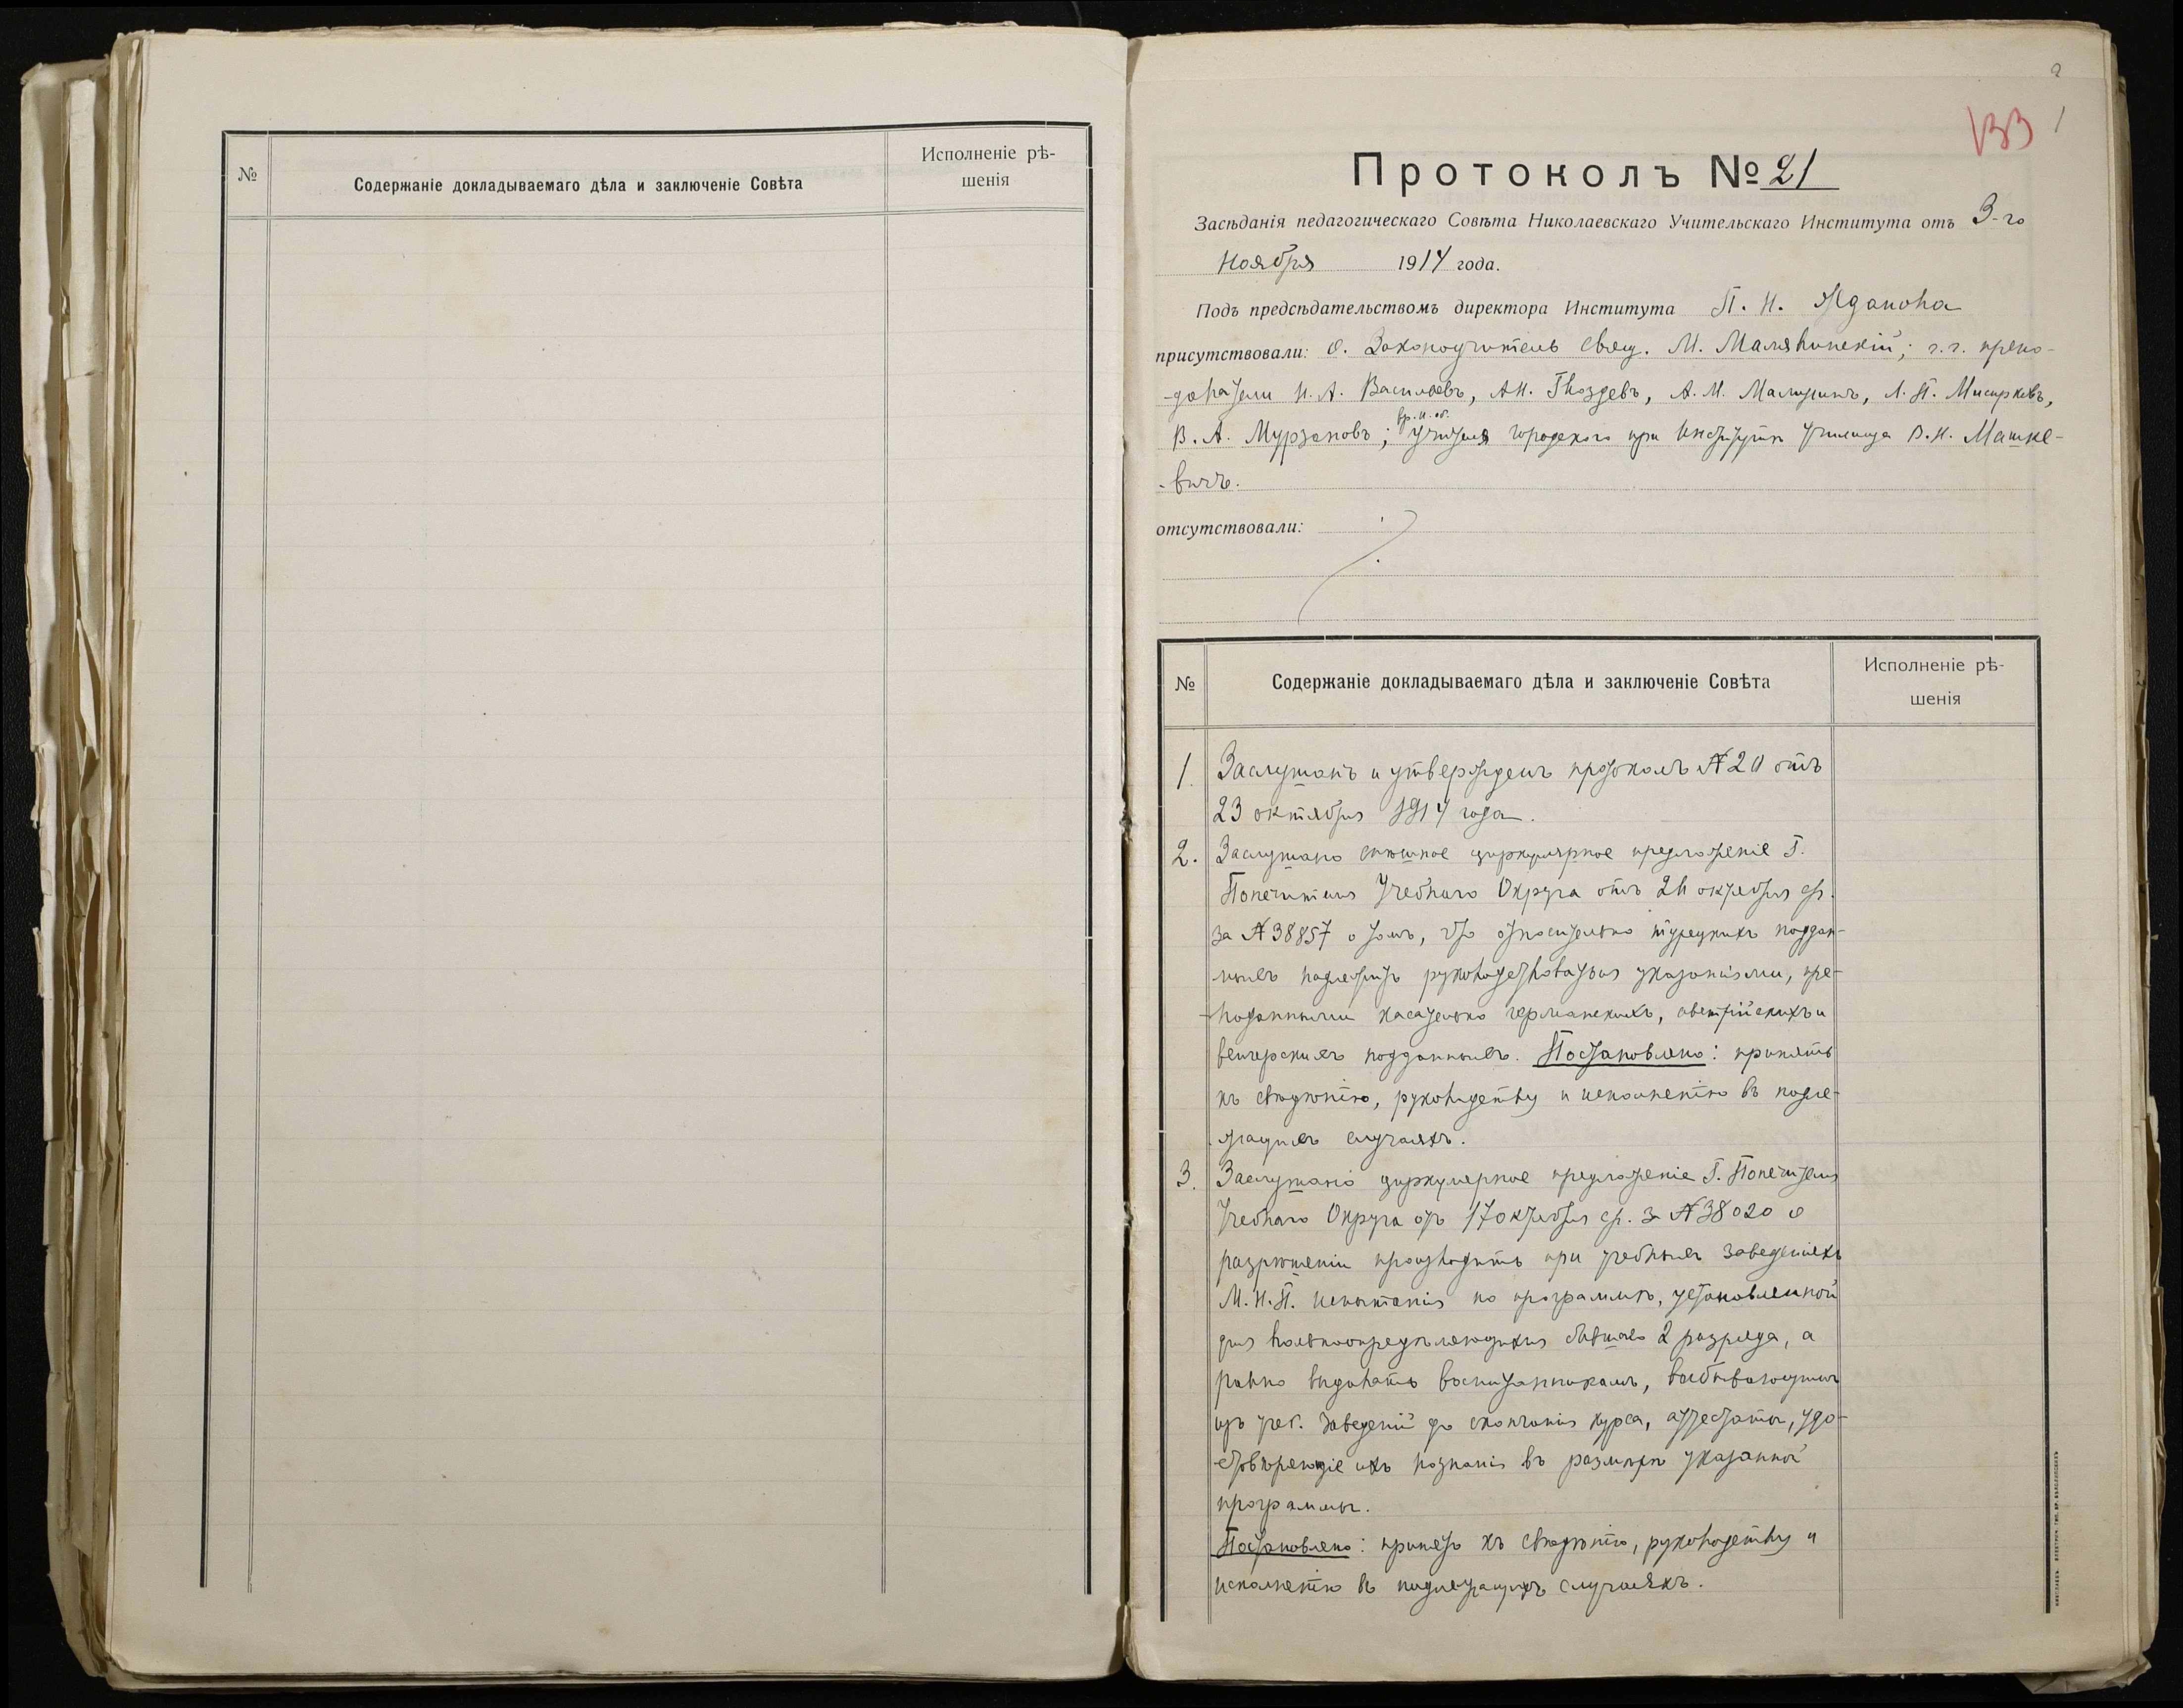 №
Содержаніе докладываемаго дѣла и заключеніе Совѣта
Исполненіе рѣ-
шенія
133
Протоколъ № 21
Засѣданія педагогическаго Совѣта Николаевскаго Учительскаго Института отъ 3-го
Ноября 1914 года.
Подъ предсѣдательствомъ директора Института П. Н. Жданова
присутствовали: о. Законоучитель свящ. М. Малявинскій; г.г. препо-
-даватели Н. А. Васильевъ, А. Н. Гвоздевъ, А. М. Малинин, Л. П. Мисирковъ,
вр. и. об.
В. А. Мурзановъ; учителя городского при Институтѣ училища В. Н. Машке-
-вичъ.
отсутствовали:
№
Содержаніе докладываемаго дѣла и заключеніе Совѣта
Исполненіе рѣ-
шенія
1. Заслушанъ и утвержденъ протоколъ № 20 отъ
23 октября 1914 года.
2. Заслушано спѣшное циркулярное предложеніе Г.
Попечителя Учебнаго Округа отъ 24 октября с/г.
за № 38857 о томъ, что относительно турецкихъ поддан-
ныхъ надлежитъ руководствоваться указаніями, пре-
-поданными касательно германскихъ, австрійскихъ и
венгерскихъ подданныхъ. Постановлено: принять
къ свѣдѣнію, руководству и исполненію въ подле-
жащихъ случаяхъ.
3. Заслушано циркулярное предложеніе Г. Попечителя
Учебнаго Округа отъ 17 октября с/г. за № 38020 о
разрѣшеніи производить при учебныхъ заведеніяхъ
М. Н. П. испытанія по программѣ, установленной
для вольноопредѣляющихся бывшаго 2 разряда, а
равно выдавать воспитанникамъ, выбывающимъ
изъ учеб. заведеній до окончанія курса, аттестаты, удо-
стовѣряющіе ихъ познанія въ размѣрѣ указанной
программы.
Постановлено: принять къ свѣдѣнію, руководству и
исполненію въ подлежащихъ случаяхъ.